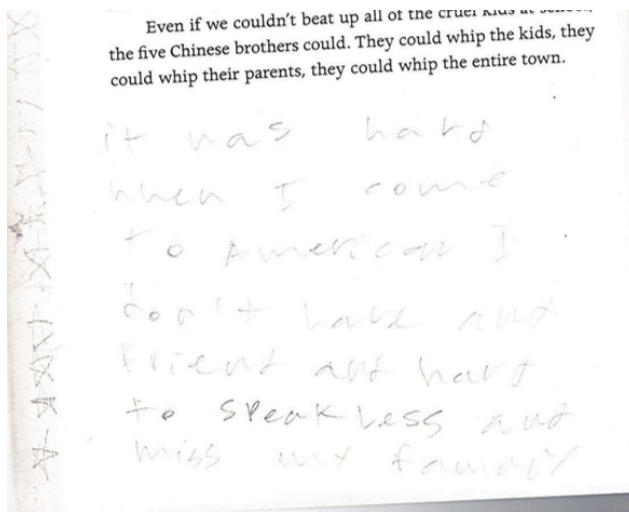 Even if we couldn't beat up all of the cruel kids at
the five Chinese brothers could. They could whip the kids, they
could whip their parents, they could whip the entire town.
it was hard
when I come
to American I
don't have and
Friend and hard
to speakless and
miss my family